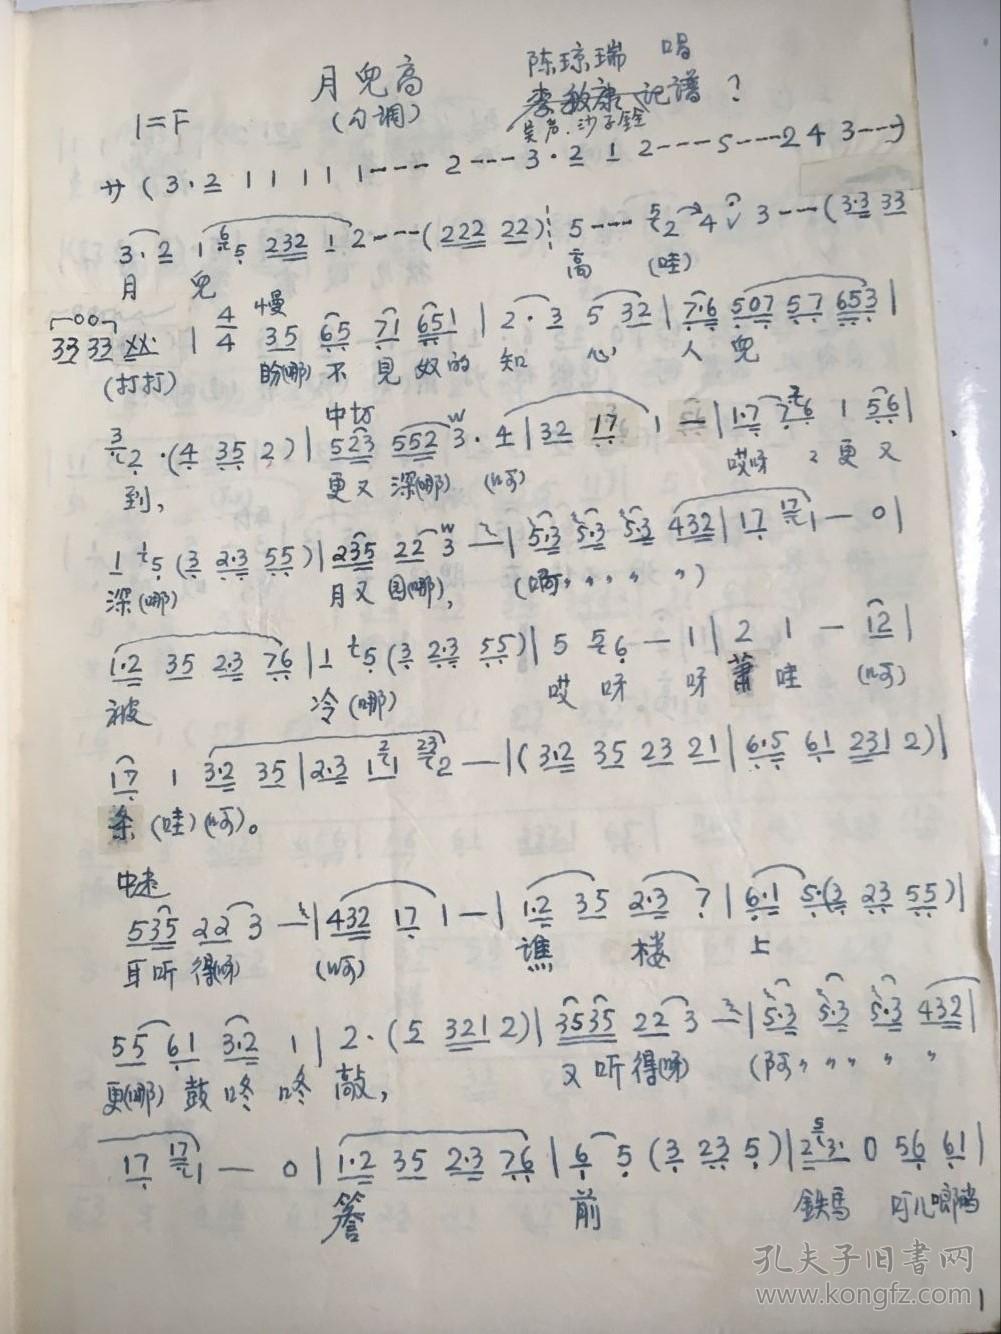 月兒高
陈琼瑞 唱
李敏康 记谱 ?
(勾调)
1=F
サ ( 3·2 1 1 1 1 1--- 2--- 3·2 1 2---- 5----2 4 3---)
3·2 1 5 232 1 2---(222 22) 5---- 2 4 3---(3·3 33
月 兒 高 (哇)
慢
33 33 XX | 4/4 35 65 71 651 | 2·3 5 32 | 7·6 507 57 653 |
(打打) 盼(哪) 不 見 奴的 知 心 人 兒
中切
2·(4 35 2) | 523 552 3·4 | 32 17 1 — | 1·7 7 6 1 56 |
到, 更又 深(哪) (呵) 哎呀 更 又
1 5 (3 2·3 55) | 235 22 3 — | 5·3 5·3 5·3 432 | 17 1 — 0 |
深(哪) 月又 园(哪), (啊〃〃〃〃)
1·2 35 2·3 76 | 1 5 (3 2·3 55) | 5 6 — 1 | 2 1 — 12 |
被 冷(哪) 哎 呀 呀 蕭 哇 (呵)
17 1 3·2 35 | 2·3 1 2 — | (3·2 35 23 21 | 6·5 61 231 2) |
条 (哇)(呵)。
中速
535 22 3 — | 432 17 1 — | 1·2 35 2·3 7 | 6·1 5·(3 23 55) |
耳听 得(呀) (呵) 譙 楼 上
55 61 3·2 1 | 2·(5 321 2) | 3535 22 3 — | 5·3 5·3 5·3 432 |
更(哪) 鼓 咚 咚 敲, 又 听得(呀) (阿〃〃〃〃
17 1 — 0 | 1·2 35 2·3 76 | 6 5 (3 23 5) | 2 3· 0 56 61 |
簷 前 鉄馬 叮儿啷当
孔夫子旧書网
www.kongfz.com
1